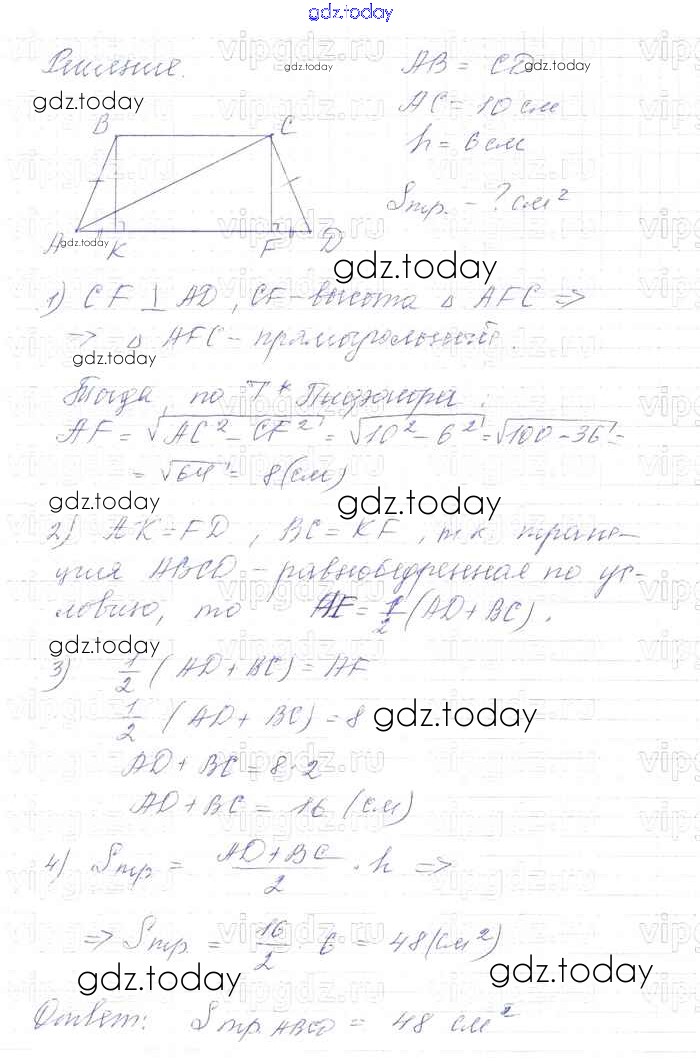 gdz.today
Решение.
AB = CD
gdz.today
gdz.today
AC = 10 см
B
C
h = 6 см
Sтр. - ? см²
A
gdz.today
K
F
D
gdz.today
1) CF ⊥ AD, CF - высота △ AFC ⇒
⇒ △ AFC - прямоугольный.
gdz.today
Тогда, по т. Пифагора:
AF = √AC² - CF² = √10² - 6² = √100 - 36 =
= √64 = 8 (см)
gdz.today
gdz.today
2) AK = FD, BC = KF, т.к. трапе-
ция ABCD - равнобедренная по ус-
ловию, то AF = 1/2 (AD + BC).
gdz.today
3) 1/2 (AD + BC) = AF
1/2 (AD + BC) = 8
gdz.today
AD + BC = 8 · 2
AD + BC = 16 (см)
4) Sтр = AD + BC / 2 · h ⇒
⇒ Sтр. = 16/2 · 6 = 48 (см²)
gdz.today
gdz.today
Ответ: Sтр. ABCD = 48 см²